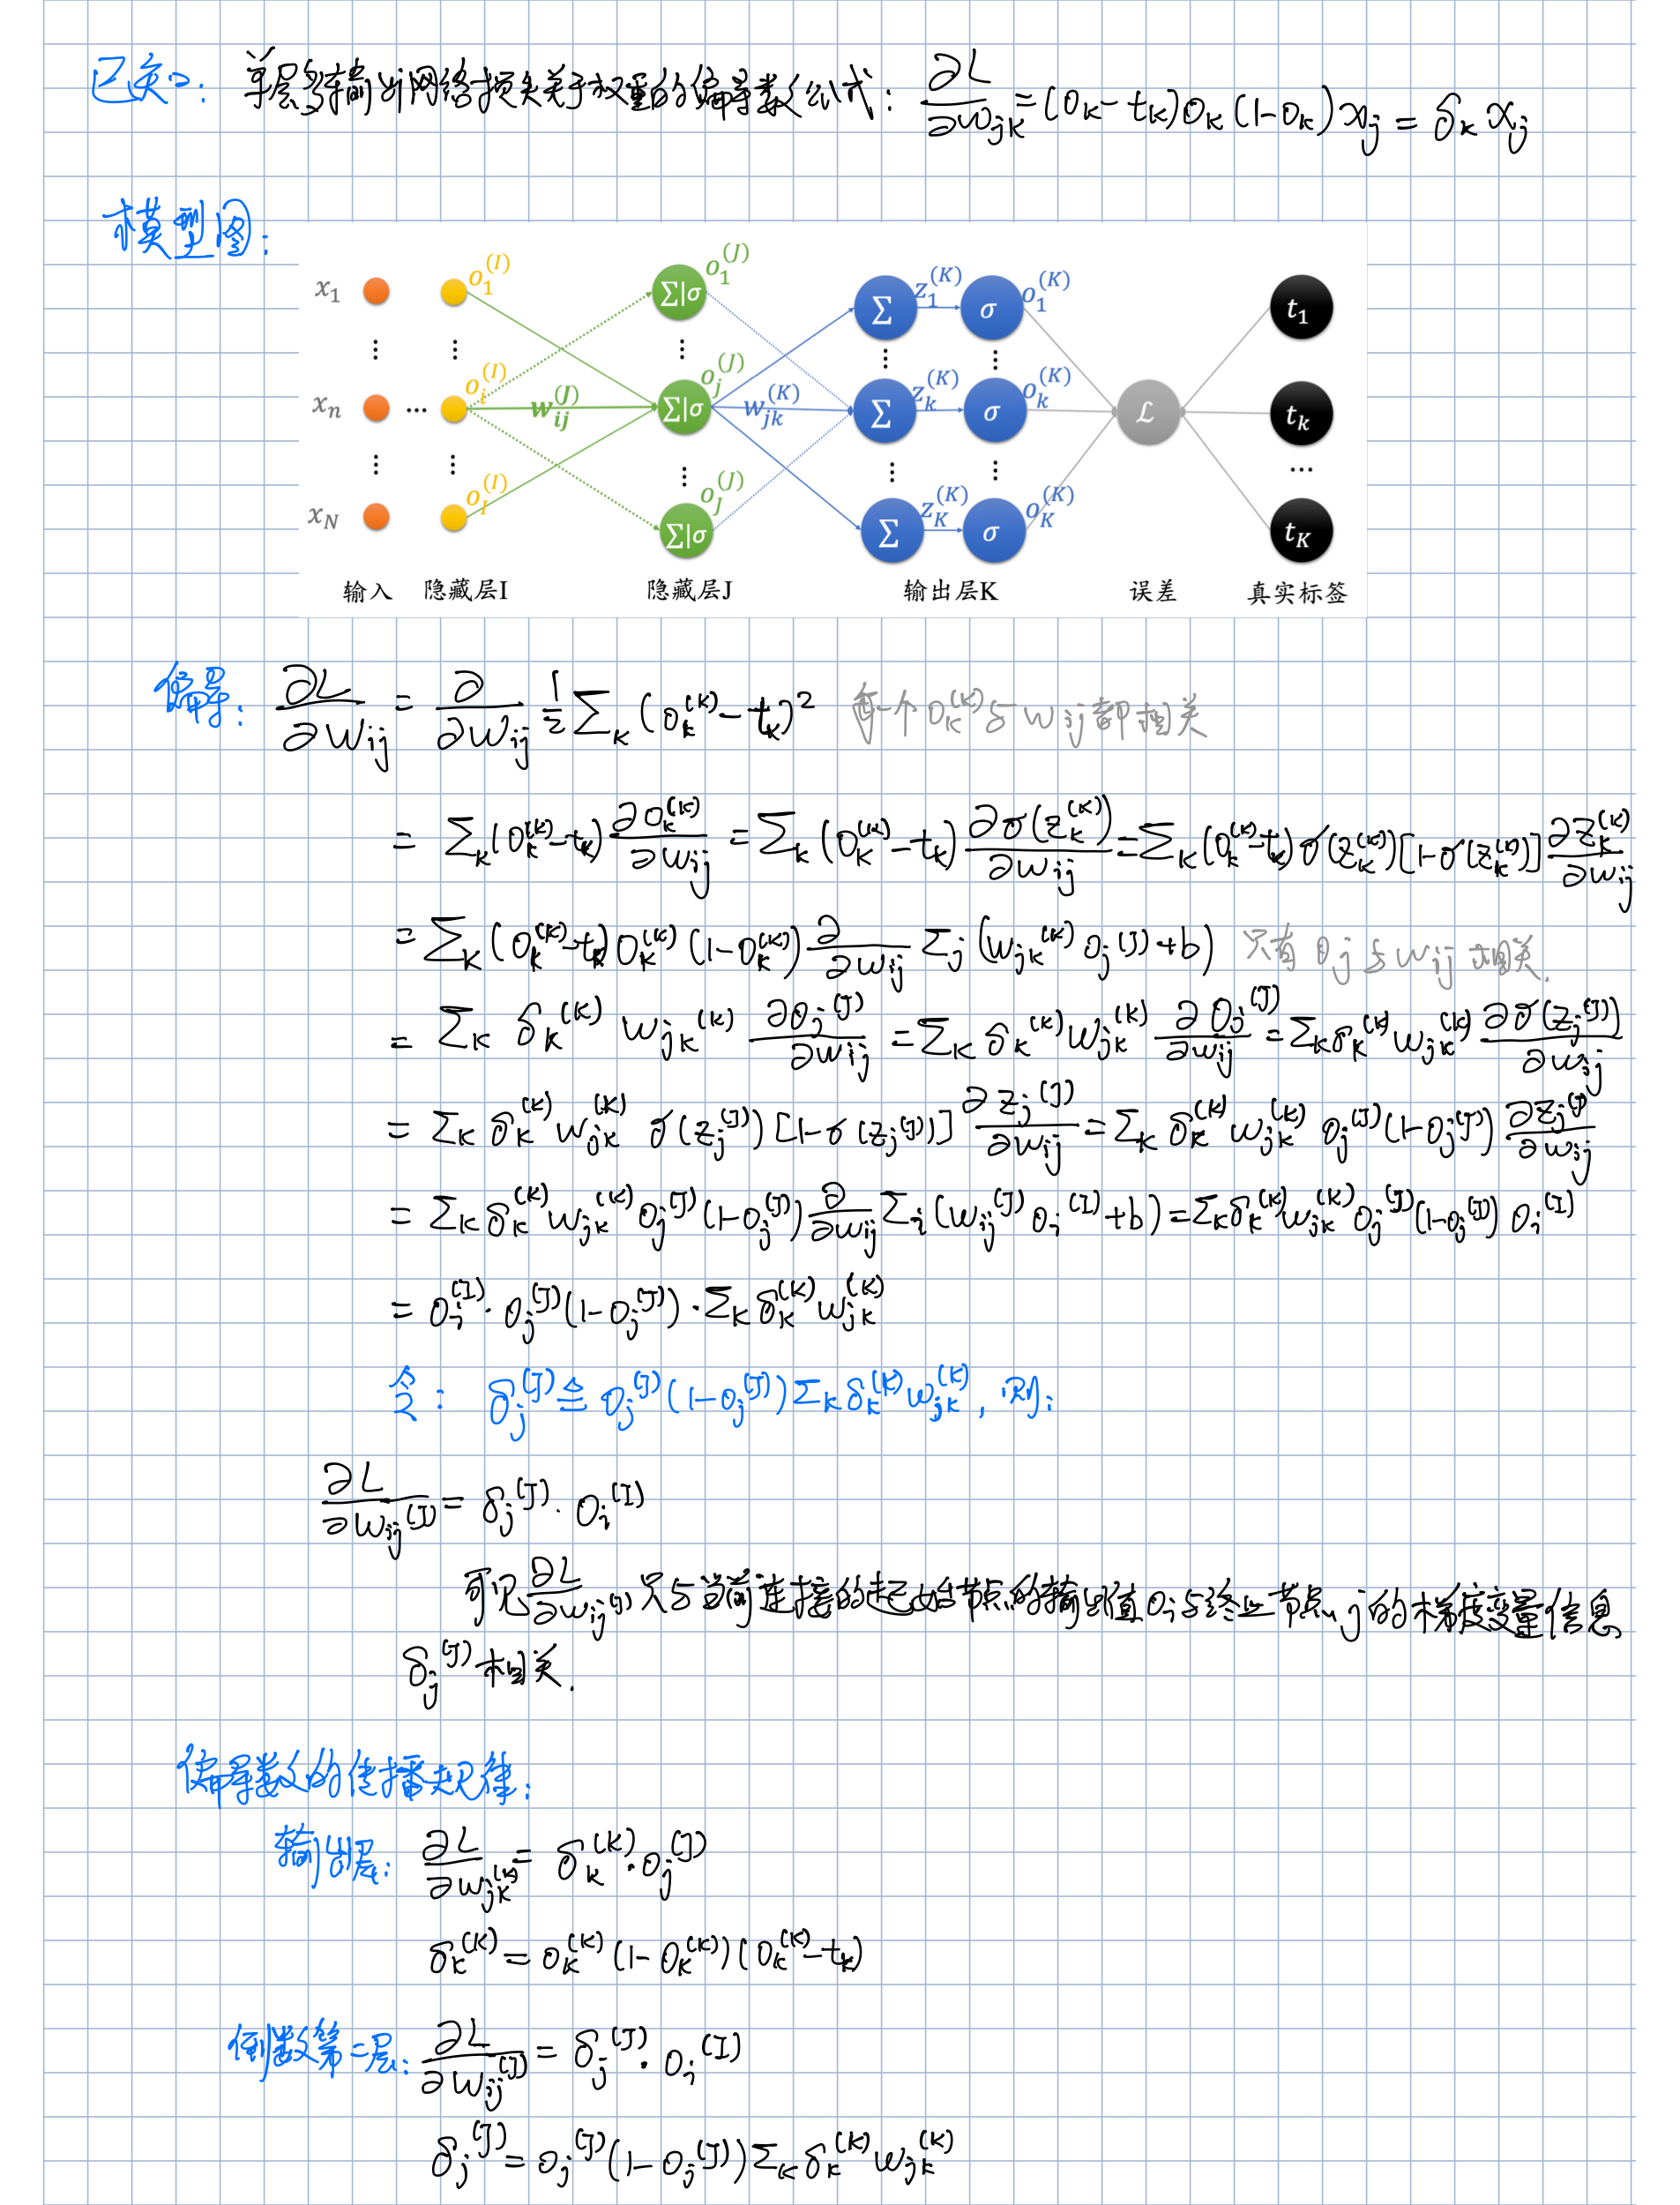 已知：单层多输出网络损失关于权重的偏导数公式：∂L/∂w_jk = (o_k - t_k) o_k (1-o_k) x_j = δ_k x_j
模型图：
x_1 o_1^(I) Σ|σ o_1^(J) Σ z_1^(K) σ o_1^(K) t_1
x_n ... o_i^(I) w_ij^(J) Σ|σ o_j^(J) w_jk^(K) Σ z_k^(K) σ o_k^(K) ℒ t_k
x_N o_I^(I) Σ|σ o_J^(J) Σ z_K^(K) σ o_K^(K) t_K
输入 隐藏层I 隐藏层J 输出层K 误差 真实标签
偏导：∂L/∂w_ij = ∂/∂w_ij 1/2 Σ_k (o_k^(K) - t_k)^2 每一个 o_k^(K) 与 w_ij 都相关
= Σ_k (o_k^(K) - t_k) ∂o_k^(K)/∂w_ij = Σ_k (o_k^(K) - t_k) ∂σ(z_k^(K))/∂w_ij = Σ_k (o_k^(K) - t_k) σ(z_k^(K)) [1-σ(z_k^(K))] ∂z_k^(K)/∂w_ij
= Σ_k (o_k^(K) - t_k) o_k^(K) (1-o_k^(K)) ∂/∂w_ij Σ_j (w_jk^(K) o_j^(J) + b) 只有 o_j 与 w_ij 相关.
= Σ_k δ_k^(K) w_jk^(K) ∂o_j^(J)/∂w_ij = Σ_k δ_k^(K) w_jk^(K) ∂o_j^(J)/∂w_ij = Σ_k δ_k^(K) w_jk^(K) ∂σ(z_j^(J))/∂w_ij
= Σ_k δ_k^(K) w_jk^(K) σ(z_j^(J)) [1-σ(z_j^(J))] ∂z_j^(J)/∂w_ij = Σ_k δ_k^(K) w_jk^(K) o_j^(J) (1-o_j^(J)) ∂z_j^(J)/∂w_ij
= Σ_k δ_k^(K) w_jk^(K) o_j^(J) (1-o_j^(J)) ∂/∂w_ij Σ_i (w_ij^(J) o_i^(I) + b) = Σ_k δ_k^(K) w_jk^(K) o_j^(J) (1-o_j^(J)) o_i^(I)
= o_i^(I) · o_j^(J) (1-o_j^(J)) · Σ_k δ_k^(K) w_jk^(K)
令： δ_j^(J) ≜ o_j^(J) (1-o_j^(J)) Σ_k δ_k^(K) w_jk^(K), 则：
∂L/∂w_ij^(J) = δ_j^(J) · o_i^(I)
可见 ∂L/∂w_ij^(J) 只与当前连接的起始节点的输出值 o_i 与终止节点 j 的梯度变量信息
δ_j^(J) 相关.
偏导数的传播规律：
输出层： ∂L/∂w_jk^(K) = δ_k^(K) · o_j^(J)
δ_k^(K) = o_k^(K) (1-o_k^(K)) (o_k^(K) - t_k)
倒数第二层： ∂L/∂w_ij^(J) = δ_j^(J) · o_i^(I)
δ_j^(J) = o_j^(J) (1-o_j^(J)) Σ_k δ_k^(K) w_jk^(K)